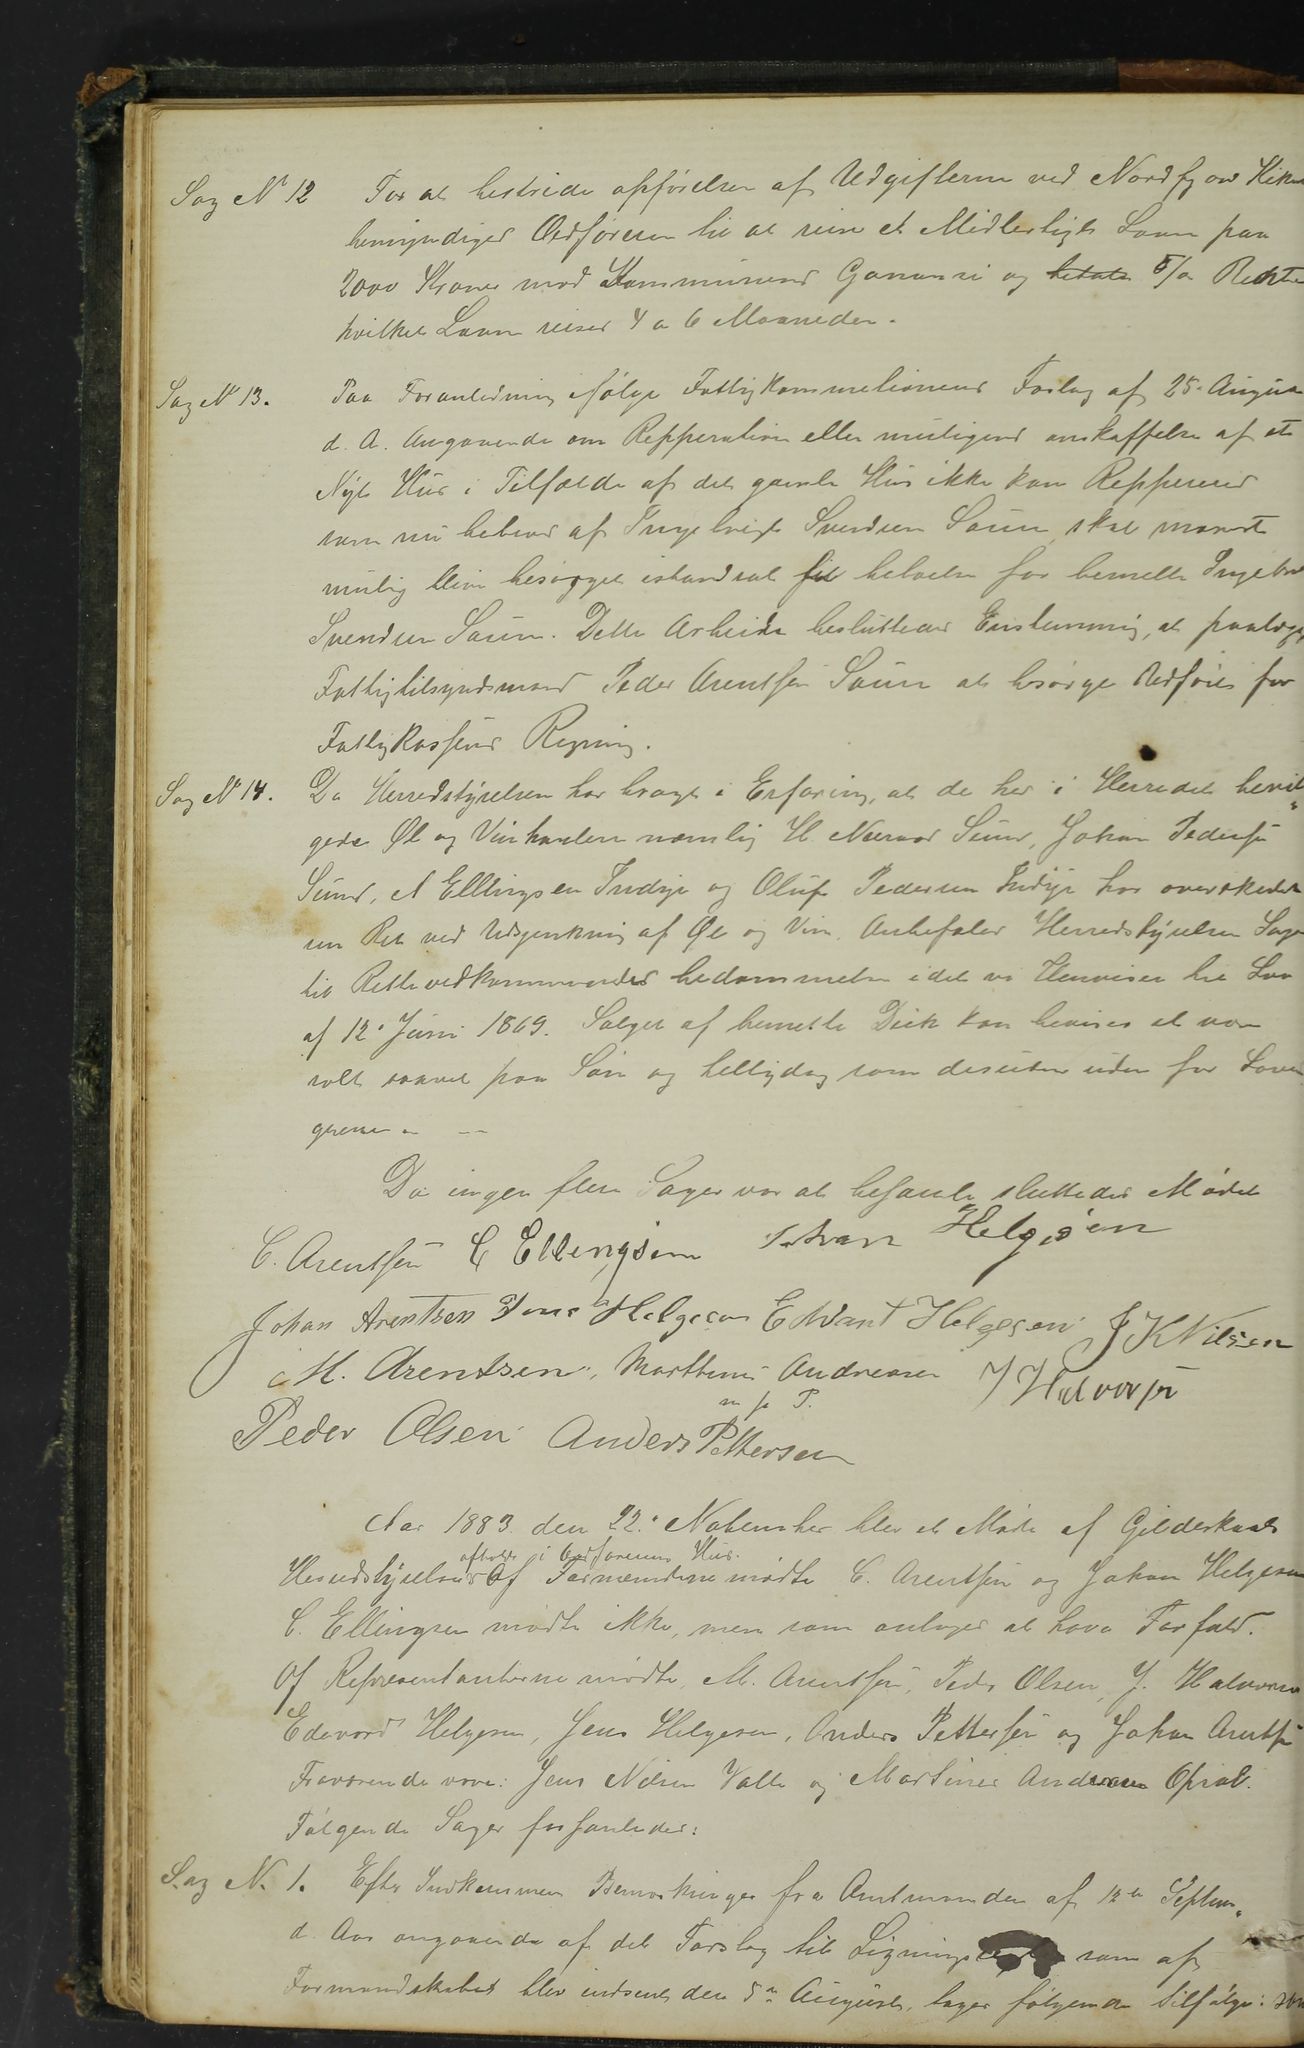 Sag No 12 For at bestride opførelsen af Udgifterne ved Nordfjord Kirke
bemyndiges Ordføreren til at reise et Midlertigts Laan paa
2000 Kroner mod Kommunens Garansi og betale 5/o Rente
hvilket Laan reises 4 a 6 Maaneder.
Sag No 13. Paa Foranledning ifølge Fattigkommetionens Forslag af 25. August
d. A. Angaaende om Repperation eller muligens anskaffelse af et
Nyt Hus i Tilfælde af det gamle Hus ikke kan Reppereres
som nu beboes af Ingebrigt Svendsen Saura skal snarest
mulig blive besørget istandsat til beboelse for bemeldte Ingebrigt
Svendsen Saura. Dette Arbeide besluttedes Enstemmig, at paalægge
Fattigtilsynsmand Peder Arentsen Saura at besørge Udføres for
Fattigkassens Regning.
Sag No 14. Da Herredstyrelsen har bragt i Erfaring, at de her i Herredet bevil
gede Øl og Vinhandlere nemlig H Sund, Johan Pedersen
Sund, A Ellingsen Indyr og Oluf Pedersen Indyr har overskredet
sin Ret ved Udskjenkning af Øl og Vin. Anbefaler Herredstyrelsen Sagen
til Rettevedkommendes bedømmelse idet vi Henviser til Lov
af 12. Juni 1869. Salget af bemeldte Drik kan bevises at være
solt saavel paa Søn og helligdag som desuten uden for Lovens
grense.
Da ingen flere Sager var at behandle sluttedes Mødet
C. Arentsen C Ellingsen Johan Helgesen
Johan Arentsen Jens Helgesen Edvart Helgesen J K Nilsen
M. Arentsen, Marthinus Andreasen J Halvorsen
m f P.
Peder Olsen Anders Pettersen
Aar 1883 den 22. November blev et Møde af Gildeskaals
afholdt i Ordførerens Hus.
Herredstyrelse Af Formændene mødte C. Arentsen og Johan Helgesen
C. Ellingsen mødte ikke, men som antages at have Forfald.
Af Representanterne mødte, M. Arentsen, Peder Olsen, J. Halvorsen
Edevard Helgesen, Jens Helgesen, Anders Pettersen og Johan Arentsen
Fraværende vare: Jens Nilsen Valle og Martinus Andreasen
Følgende Sager forhandledes:
Sag N. 1. Efter Indkommen Bemerkninger fra Amtmanden af 12te Septem
d. Aar angaaende af det Forslag til som af
Formandskabet blev indsendt den 5te August, tages følgende tilfølge: som